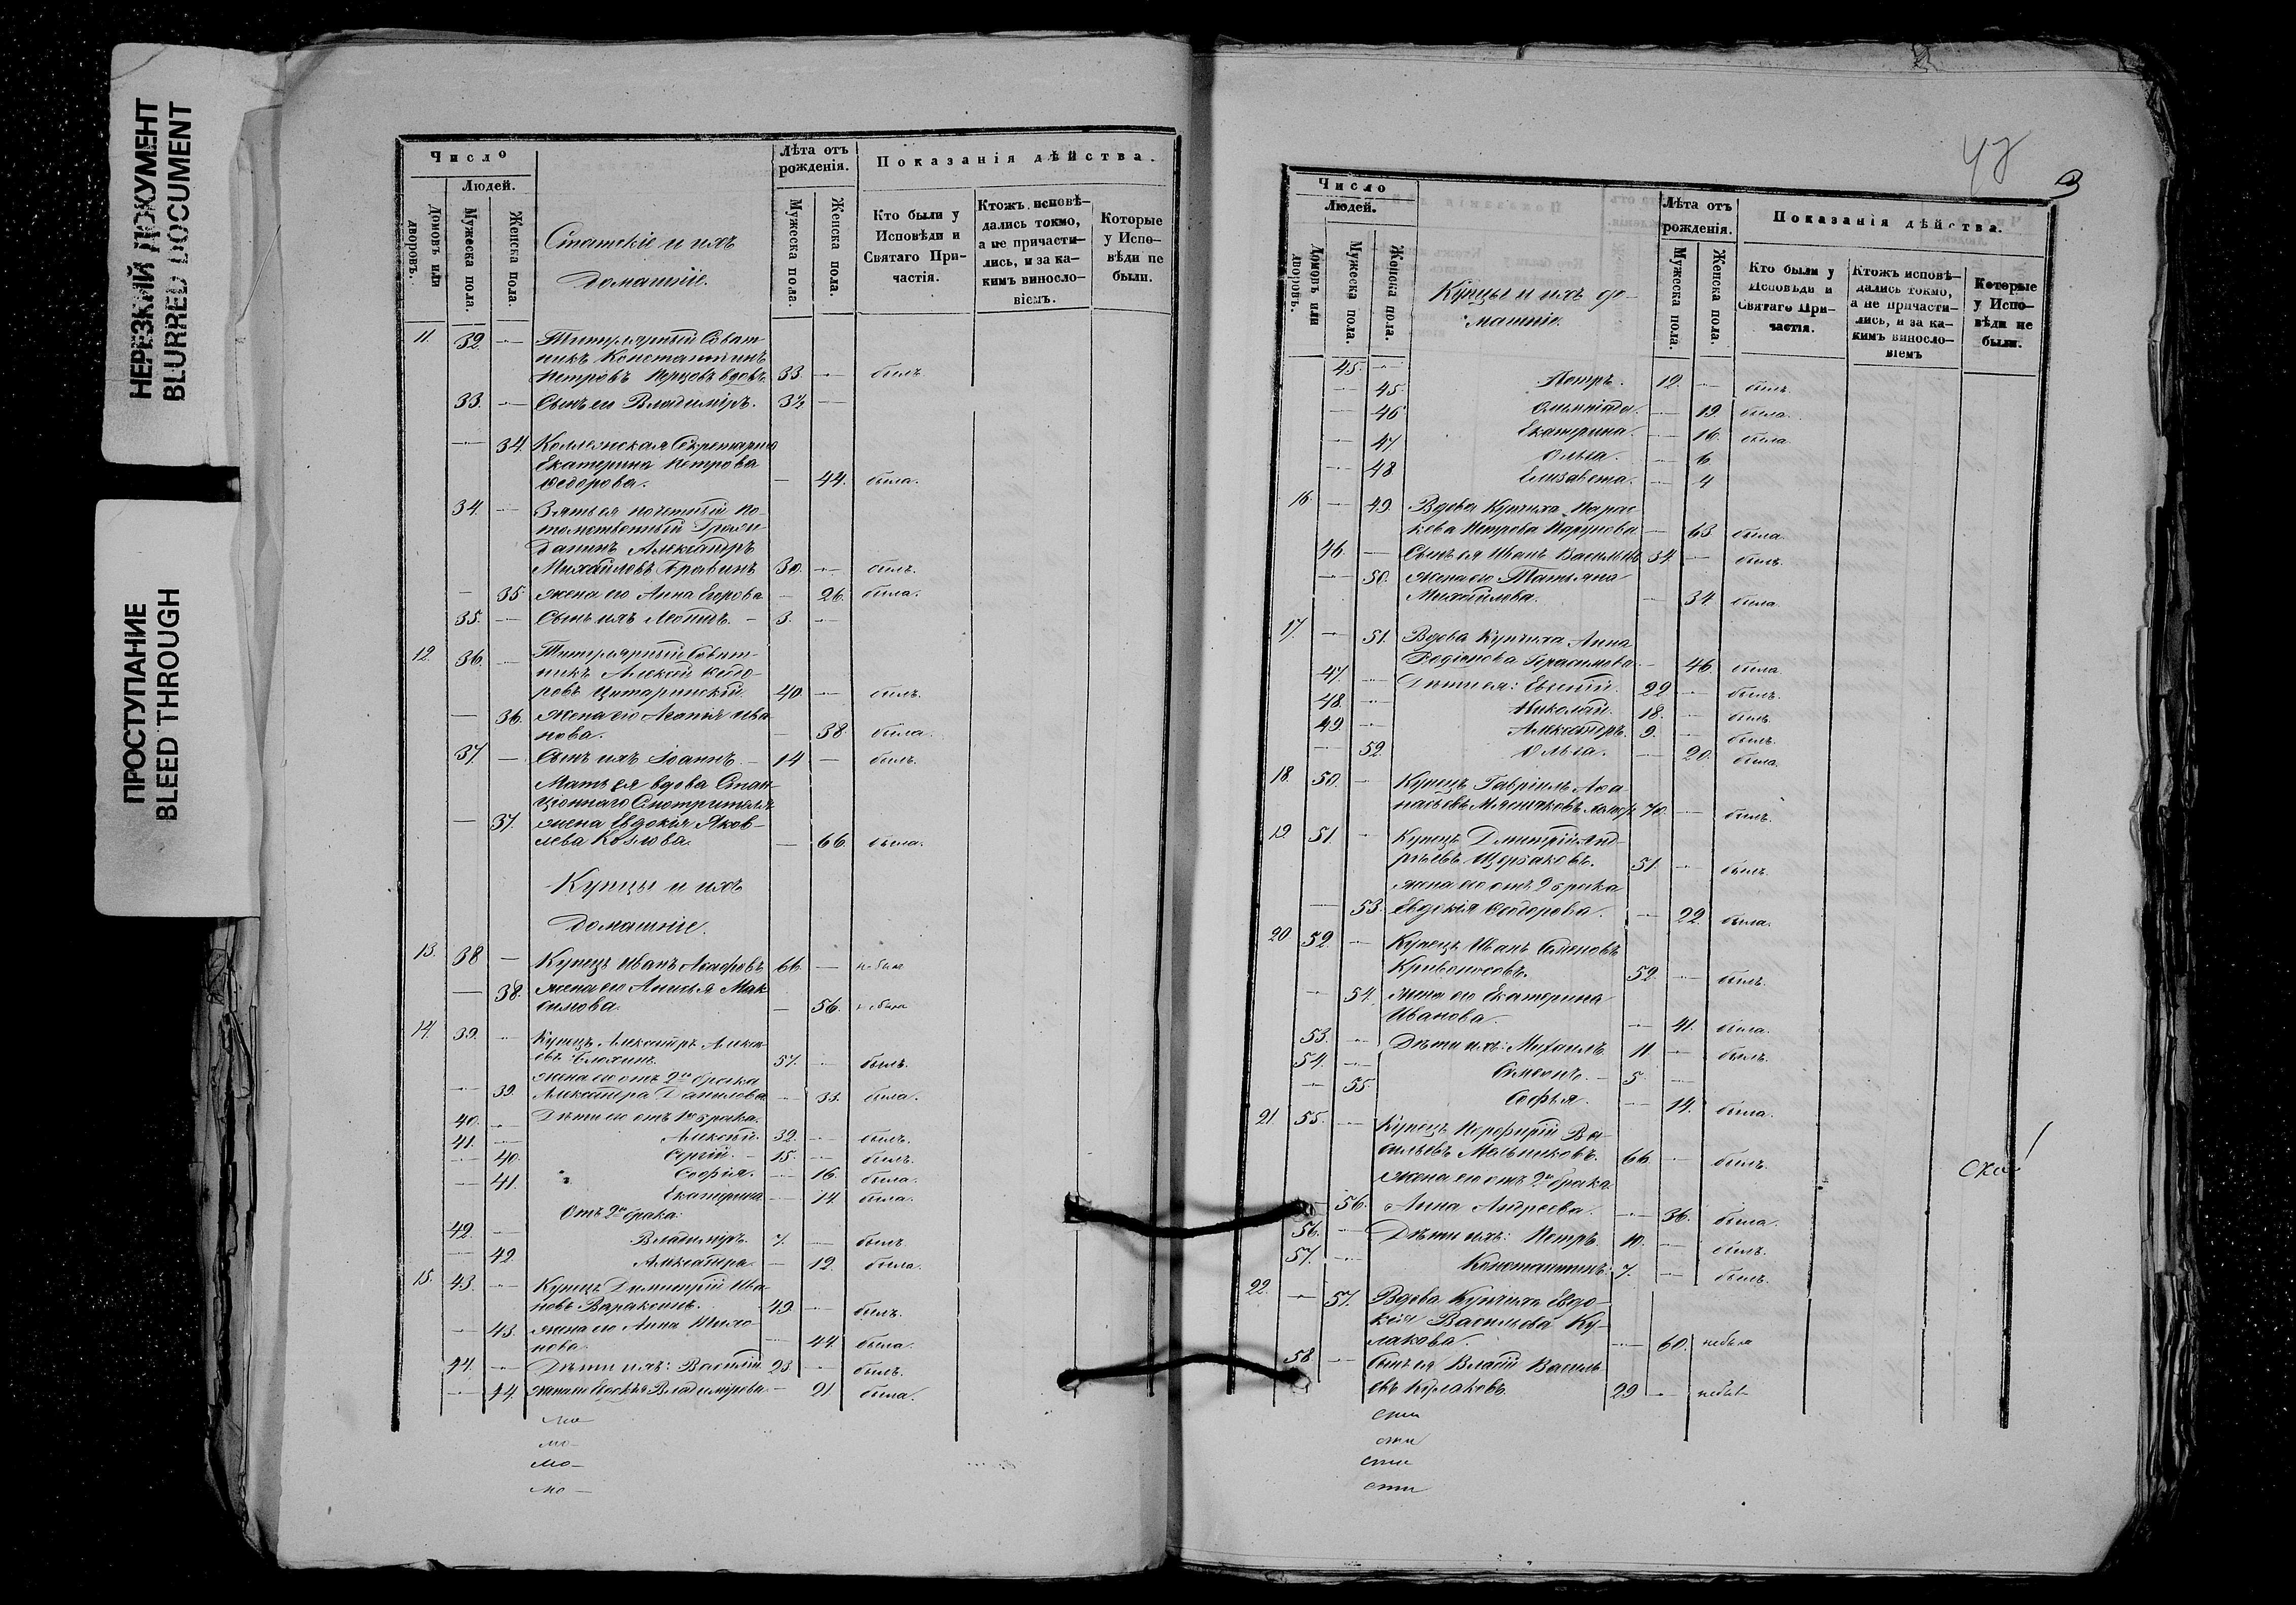 НЕРЕЗКИЙ ДОКУМЕНТ
BLURRED DOCUMENT
ПРОСТУПАНИЕ
BLEED THROUGH
Число
Людей.
Домовъ или дворовъ.
Мужеска пола.
Женска пола.
Статскіе и ихъ
домашніе.
Лѣта отъ рожденія.
Мужеска пола.
Женска пола.
Показанія дѣйства.
Кто были у Исповѣди и Святаго Причастія.
Ктожъ исповѣ-
дались токмо,
а не причасти-
лись, и за ка-
кимъ винословіемъ.
Которые
у Испо-
вѣди не
были.
11. 32. — Титулярный Совѣт-
никъ Константинъ
Петровъ вдовъ 33. — былъ
33. — Сынъ его Владиміръ. 3½ —
— 34. Коллежская Секретарша
Екатерина Петрова
Ѳедорова. — 44. была.
34. — Зять ея почетный По-
томственный Граж-
данинъ Александръ
Михайловъ 30. — былъ.
— 35 жена его Анна Егорова — 26. была.
35. — Сынъ ихъ Леонидъ. — 3. —
12. 36. — Титулярный Совѣт-
никъ Алексѣй Ѳедо-
ровъ 40. — былъ.
— 36. жена его Ива
нова. — 38. была.
37. — Сынъ ихъ Іоаннъ. — 14 — былъ.
Мать ея вдова Стан-
ціоннаго Смотрителя
— 37. жена Евдокія Яков-
лева Козлова. — 66. была.
Купцы и ихъ
домашніе.
13. 38 — Купецъ Иванъ 66. — не былъ
— 38. жена его Анисья Мак
симова. — 56. не была
14. 39. — Купецъ Александръ Алексѣ-
евъ 57. — былъ.
жена его отъ 2го брака
— 39. Александра Данилова — 33. была.
Дѣти его отъ 1го брака.
40. — Алексѣй. 32. — былъ.
41. — Сергій. — 15. — былъ.
— 40. Софія. — 16. была.
— 41. Екатерина — 14. была.
Отъ 2го брака:
42. — Владиміръ. 7. — былъ.
— 42. Александра. — 12. была.
15. 43. — Купецъ Димитрій Ива
новъ Вараксинъ. 49. — былъ.
— 43. жена его Анна
нова. — 44. была.
44. — Дѣти ихъ: Василій 23 — былъ.
— 44. жена его Евдокія Владимірова. — 21. была.
мо—
мо—
мо—
мо—
3
Число
Людей.
Домовъ или дворовъ.
Мужеска пола.
Женска пола.
Купцы и ихъ до-
машніе.
Лѣта отъ
рожденія.
Мужеска пола.
Женска пола.
Показанія дѣйства.
Кто были у
Исповѣди и
Святаго При-
частія.
Ктожъ исповѣ-
дались токмо,
а не причасти-
лись, и за ка-
кимъ винословіемъ
Которые
у Испо-
вѣди не
были.
45. — Петръ. 12. — былъ.
— 45. Олимпіада. — 19. была.
— 46. Екатерина. — 16. была.
— 47. Ольга. — 6.
— 48. Елизавета. — 4
16. — 49. Вдова Купчиха Парас-
кева Петрова — 63 была.
46. — Сынъ ея Иванъ Васильевъ 34. — былъ.
— 50. жена его Татьяна
Михайлова. — 34. была.
17. — 51. Вдова Купчиха Анна
Родіонова Герасимова. — 46. была
47. — Дѣти ея: Евгеній. 22 — былъ.
48. — Николай. 18. — былъ.
49. — Александръ. 9. — былъ.
— 52. Ольга. — 20. была.
18. 50. — Купецъ Гавріилъ Аѳа-
насьевъ 70. — былъ.
19. 51. — Купецъ Дмитрій Анд-
реевъ Щербаковъ. 51. — былъ.
жена его отъ 2 брака
— 53. Евдокія Ѳедорова. — 22. была.
20 52. — Купецъ Иванъ Семеновъ
Кривоносовъ. 52. — былъ.
— 54. жена его Екатерина
Иванова. — 41. была.
53. — Дѣти ихъ: Михаилъ 11. — былъ.
54. — Симеонъ. — 5. —
— 55. Софья. — 14. была.
21. 55. — Купецъ Порфирій Ва-
сильевъ Мельниковъ. 66. — былъ.
жена его отъ 2го брака
— 56. Анна Андреева. — 36. была.
56. — Дѣти ихъ: Петръ. 10. — былъ.
57. — Константинъ. 7. — былъ.
22. — 57. Вдова Купчиха Евдо-
кія Васильева Ку-
лакова. — 60. не была
58 — Сынъ ея Власій Василь
евъ Кулаковъ. 29 — не былъ
сти
сти
сти
сти